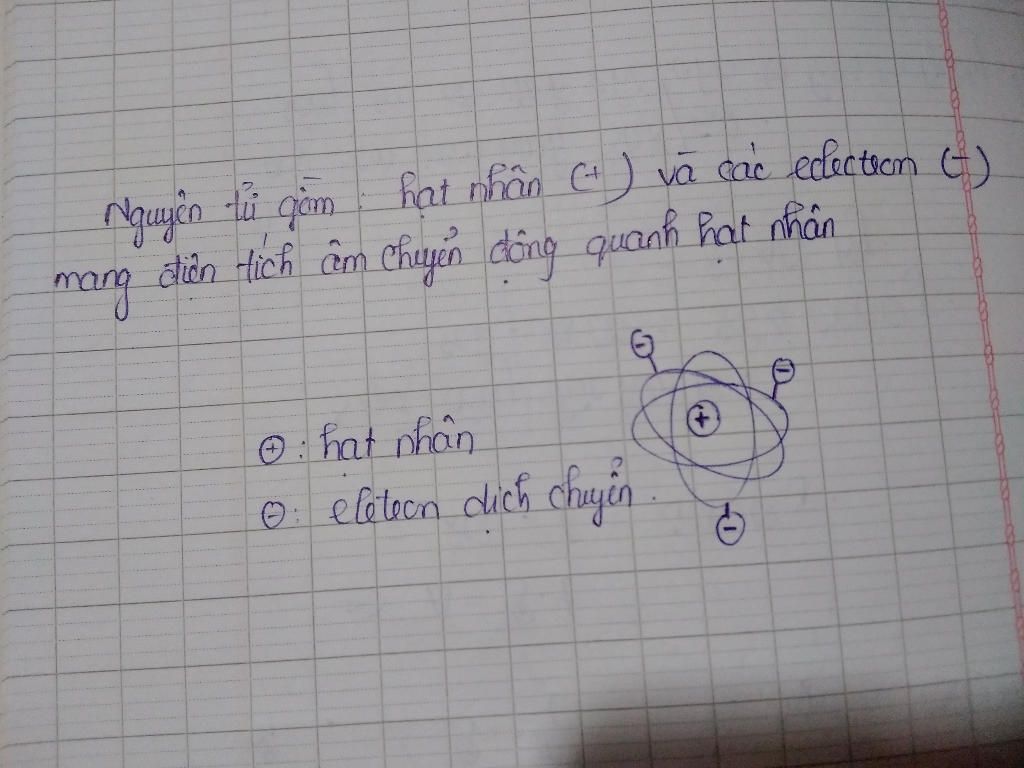 Nguyên tử gồm: hạt nhân (+) và các eclectecn (-)
mang điện tích âm chuyển động quanh hạt nhân
⊖
⊖
⊕
⊕: hạt nhân
⊖: elêtecn dịch chuyển.
⊖